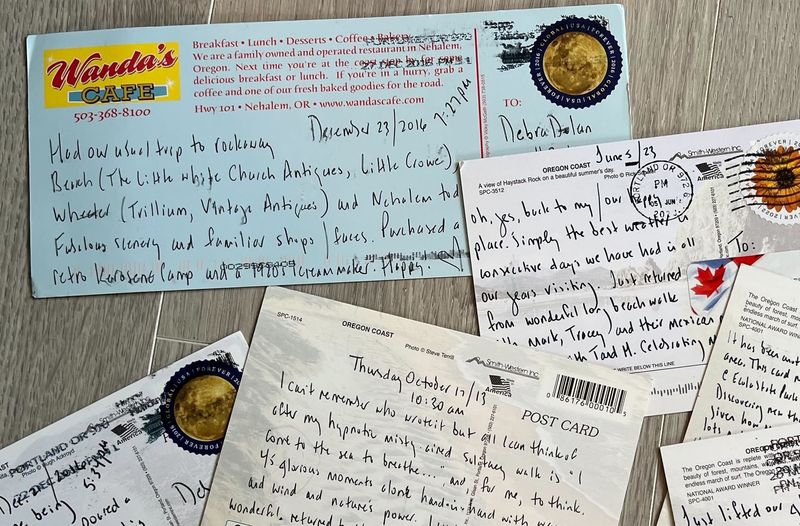 Wanda's
CAFE
503-368-8100
Breakfast • Lunch • Desserts • Coffee • Bakery
We are a family owned and operated restaurant in Nehalem,
Oregon. Next time you're at the
delicious breakfast or lunch. If you're in a hurry, grab a
coffee and one of our fresh baked goodies for the road.
Hwy 101 • Nehalem, OR • www.wandascafe.com
27 DEC 2016
December 23/2016
7:27 pm
Had our usual trip to rockaway
Beach (The Little White Church Antiques, Little Crowe)
Wheeler (Trillium, Vintage Antiques) and Nehalem
Fabulous scenery and familiar shops / faces. Purchased a
retro kerosene lamp and a 1970s icecream maker. Happy.
TO:
Debra Dolan
GLOBAL USA FOREVER 2016
OREGON COAST
A view of Haystack Rock on a beautiful summer's day.
SPC-3512
Photo © Rick
Smith-Western Inc.
America
June 5/23
PORTLAND OR 972
PM
FOREVER
oh, yes, back to my / our happy
place. Simply the best weather in
consecutive days we have had in all
our years visiting. Just returned
from wonderful long beach walk
with Mark, Tracey) and their mexican
Todd M. Celebrating
WRITE BELOW THIS LINE
To:
SPC-1514
OREGON COAST
Photo © Steve Terrill
Smith-Western Inc.
America
0 86176 00010 5
POST CARD
Thursday October 17/13
10:30 am
I can't remember who wrote it but all I can think of
after my hypnotic misty-aired solitary walk is "I
come to the sea to breathe..." and for me, to think.
glorious moments alone hand-in-hand with
and wind and nature's power.
wonderful. returned
PORTLAND OR
22 DEC 2016
Photo © Hugh Ackroyd
5:34 pm
being
poured a
Deb
America
The Oregon Coast
beauty of forest, moun
endless march of surf.
NATIONAL AWARD WINNER
SPC-4001
It has been
area. This card
@ Ecola State Park
Discovering new
given how
lots.
OREGON
The Oregon Coast is replete
beauty of forest, mountains,
endless march of surf. The Oregon
NATIONAL AWARD WINNER
SPC-4001
Just lifted our